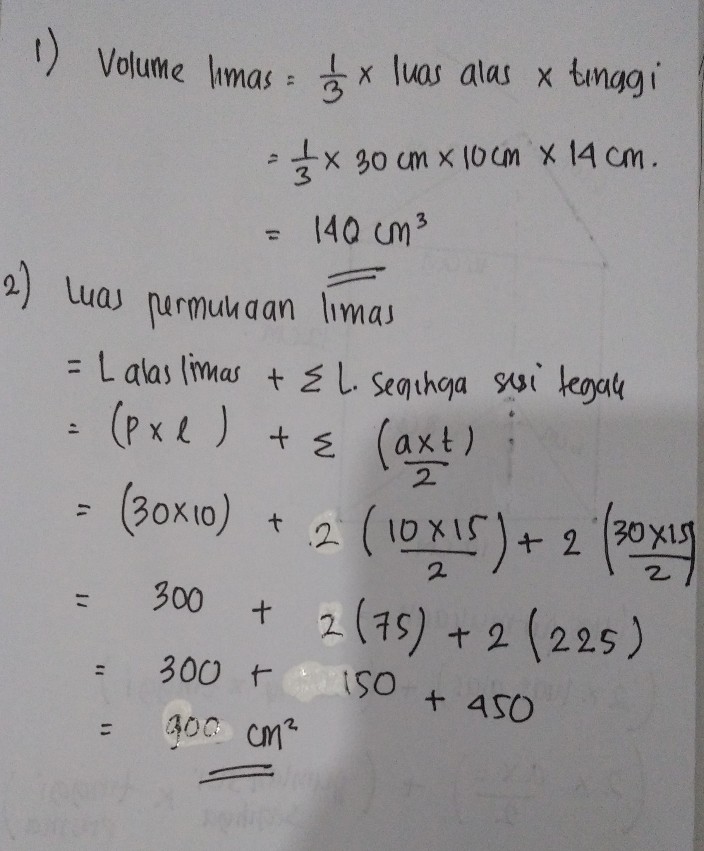 1) Volume limas = 1/3 x luas alas x tinggi
= 1/3 x 30 cm x 10 cm x 14 cm.
= 140 cm³
2) Luas permukaan limas
= L alas limas + Σ L. segitiga sisi tegak
= (p x l) + Σ (axt/2)
= (30x10) + 2 (10 x 15/2) + 2 (30 x 15/2)
= 300 + 2 (75) + 2 (225)
= 300 + 150 + 450
= 900 cm²